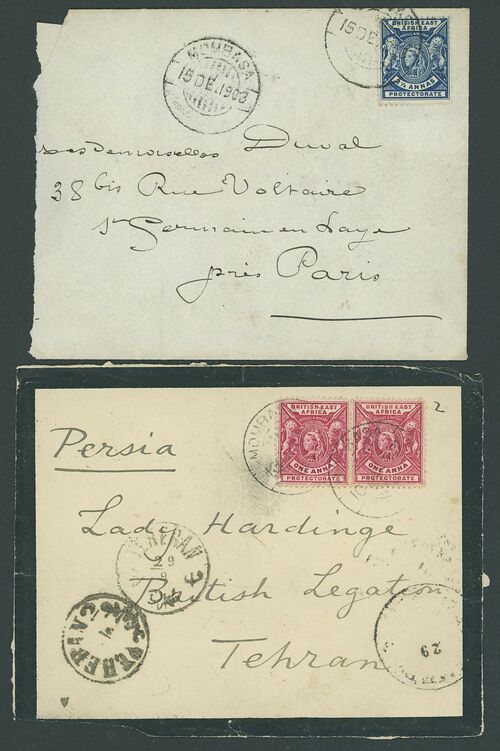 MOMBASA
15 DE. 1903
15 DE.
BRITISH EAST
AFRICA
2½ ANNAS
PROTECTORATE
Mesdemoiselles Duval
38 bis Rue Voltaire
St Germain en Laye
près Paris
MOMBASA
BRITISH EAST
AFRICA
ONE ANNA
PROTECTORATE
BRITISH EAST
AFRICA
ONE ANNA
PROTECTORATE
2
Persia
Lady Hardinge
British Legation
Tehran
TEHERAN
29
TEHERAN
29